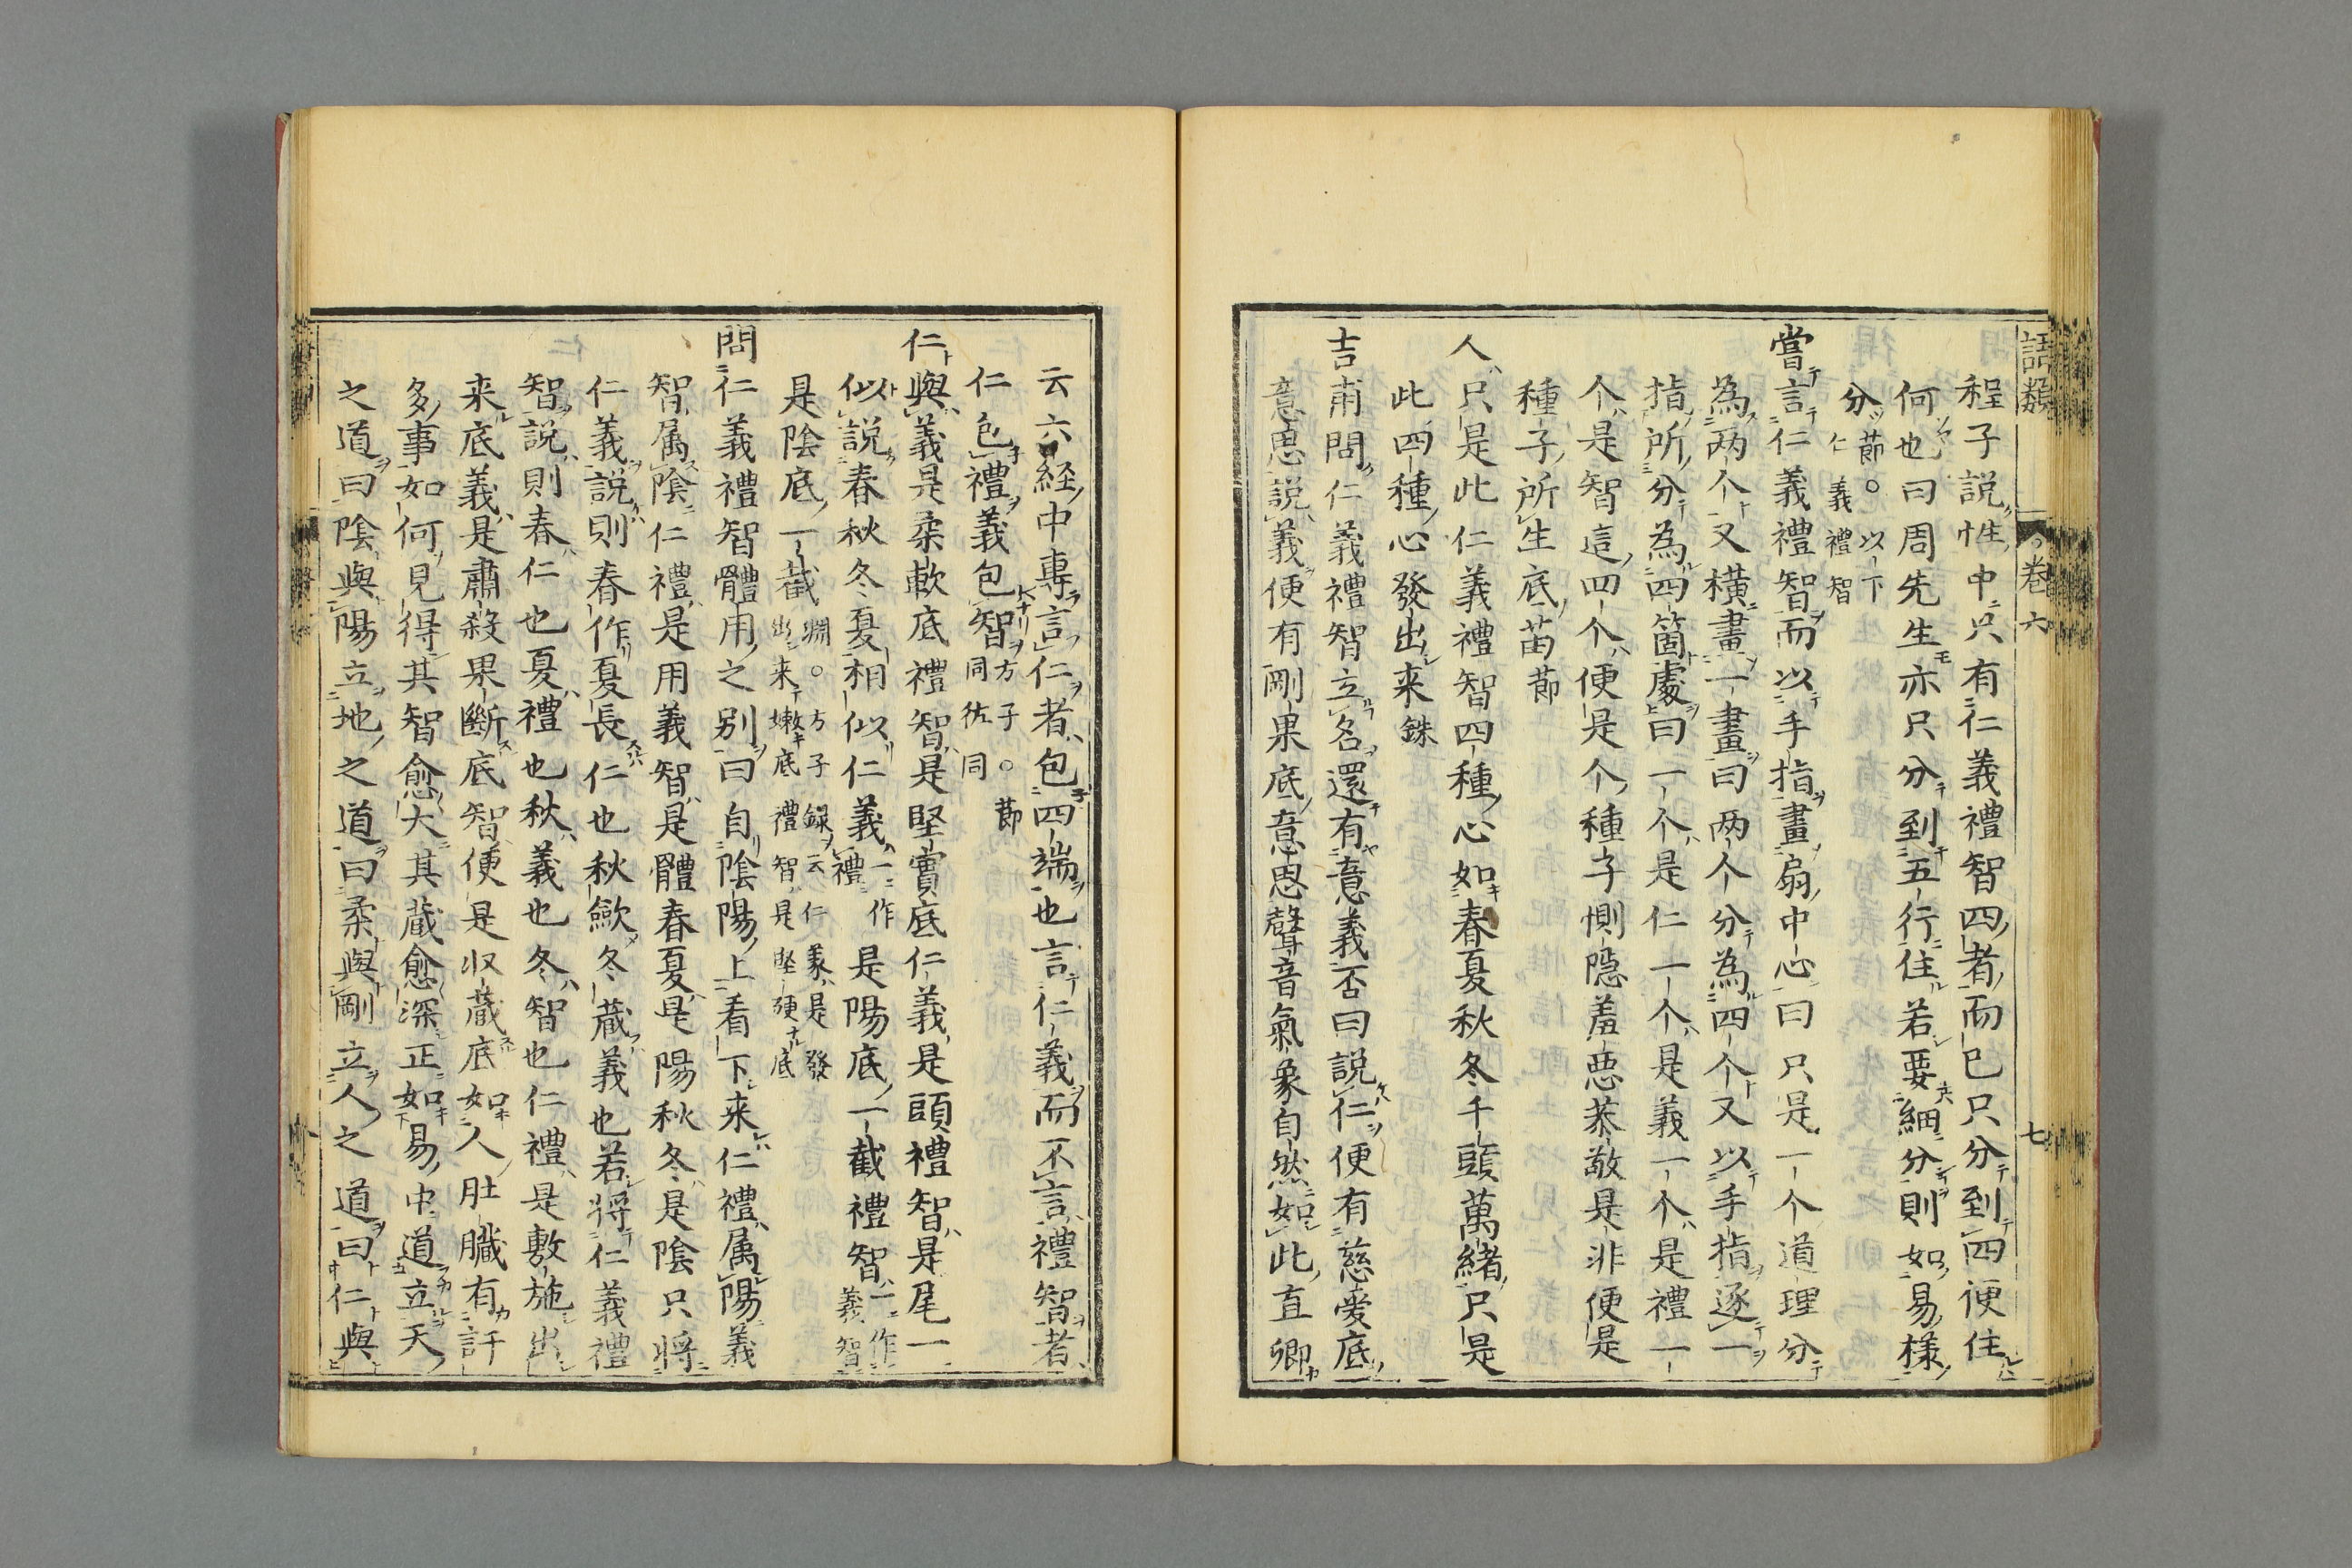 語類 卷六 七
程子說性中只有仁義禮智四者而已只分到四便住
何也曰周先生亦只分到五行住若要細分則如易樣
分節○以下仁義禮智
嘗言仁義禮智而以手指畫扇中心曰只是一个道理分
為两个又橫畫一畫曰两个分為四个又以手指逐一
指所分為四箇處曰一个是仁一个是義一个是禮一
个是智這四个便是个種子惻隠羞惡恭敬是非便是
種子所生底苗節
人只是此仁義禮智四種心如春夏秋冬千頭萬緒只是
此四種心發出来銖
吉甫問仁義禮智立名還有意義否曰說仁便有慈愛底
意思說義便有剛果底意思聲音氣象自然如此直卿
云六経中專言仁者包四端也言仁義而不言禮智者
仁包禮義包智方子○節同佐同
仁與義是柔軟底禮智是堅實底仁義是頭禮智是尾一
似說春秋冬夏相似仁義一作禮是陽底一截禮智一作義智
是陰底一截淵○方子録云仁義是發出来嫩底禮智是堅硬底
問仁義禮智體用之別曰自陰陽上看下来仁禮属陽義
智属陰仁禮是用義智是體春夏是陽秋冬是陰只將
仁義說則春作夏長仁也秋斂冬蔵義也若將仁義禮
智說則春仁也夏禮也秋義也冬智也仁禮是敷施出
来底義是肅殺果斷底智便是収蔵底如人肚臟有許
多事如何見得其智愈大其蔵愈深正如易中道立天
之道曰陰與陽立地之道曰柔與剛立人之道曰仁與